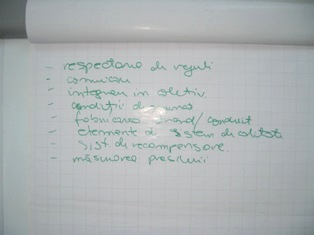 - respectarea de reguli
- comunicare
- integrare in colectiv
- condiții de muncă
- fabricarea brand/ conduct
- elemente de sistem de calitate
- sist. de recompensare.
- măsurarea presiunii